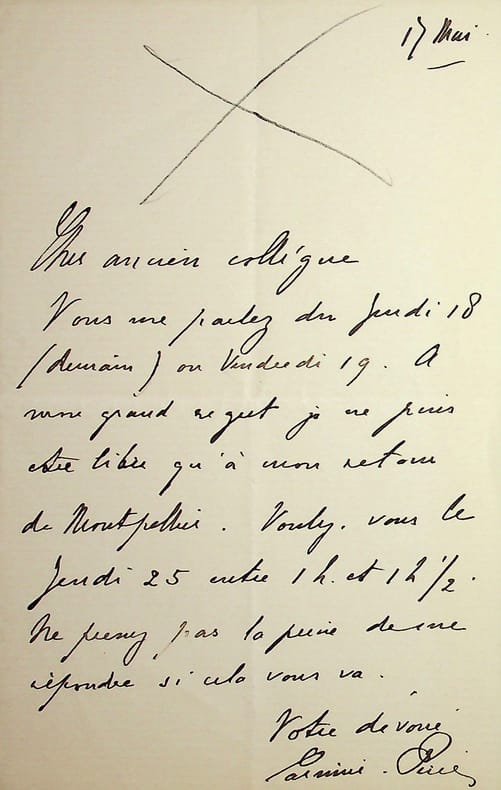 17 Mai
Cher ancien collègue
Vous me parlez du Jeudi 18
(demain) ou Vendredi 19. A
mon grand regret je ne puis
être libre qu'à mon retour
de Montpellier. Voulez-vous le
Jeudi 25 entre 1 h. et 1 h 1/2.
Ne prenez pas la peine de me
répondre si cela vous va.
Votre dévoué
Casimir-Perier